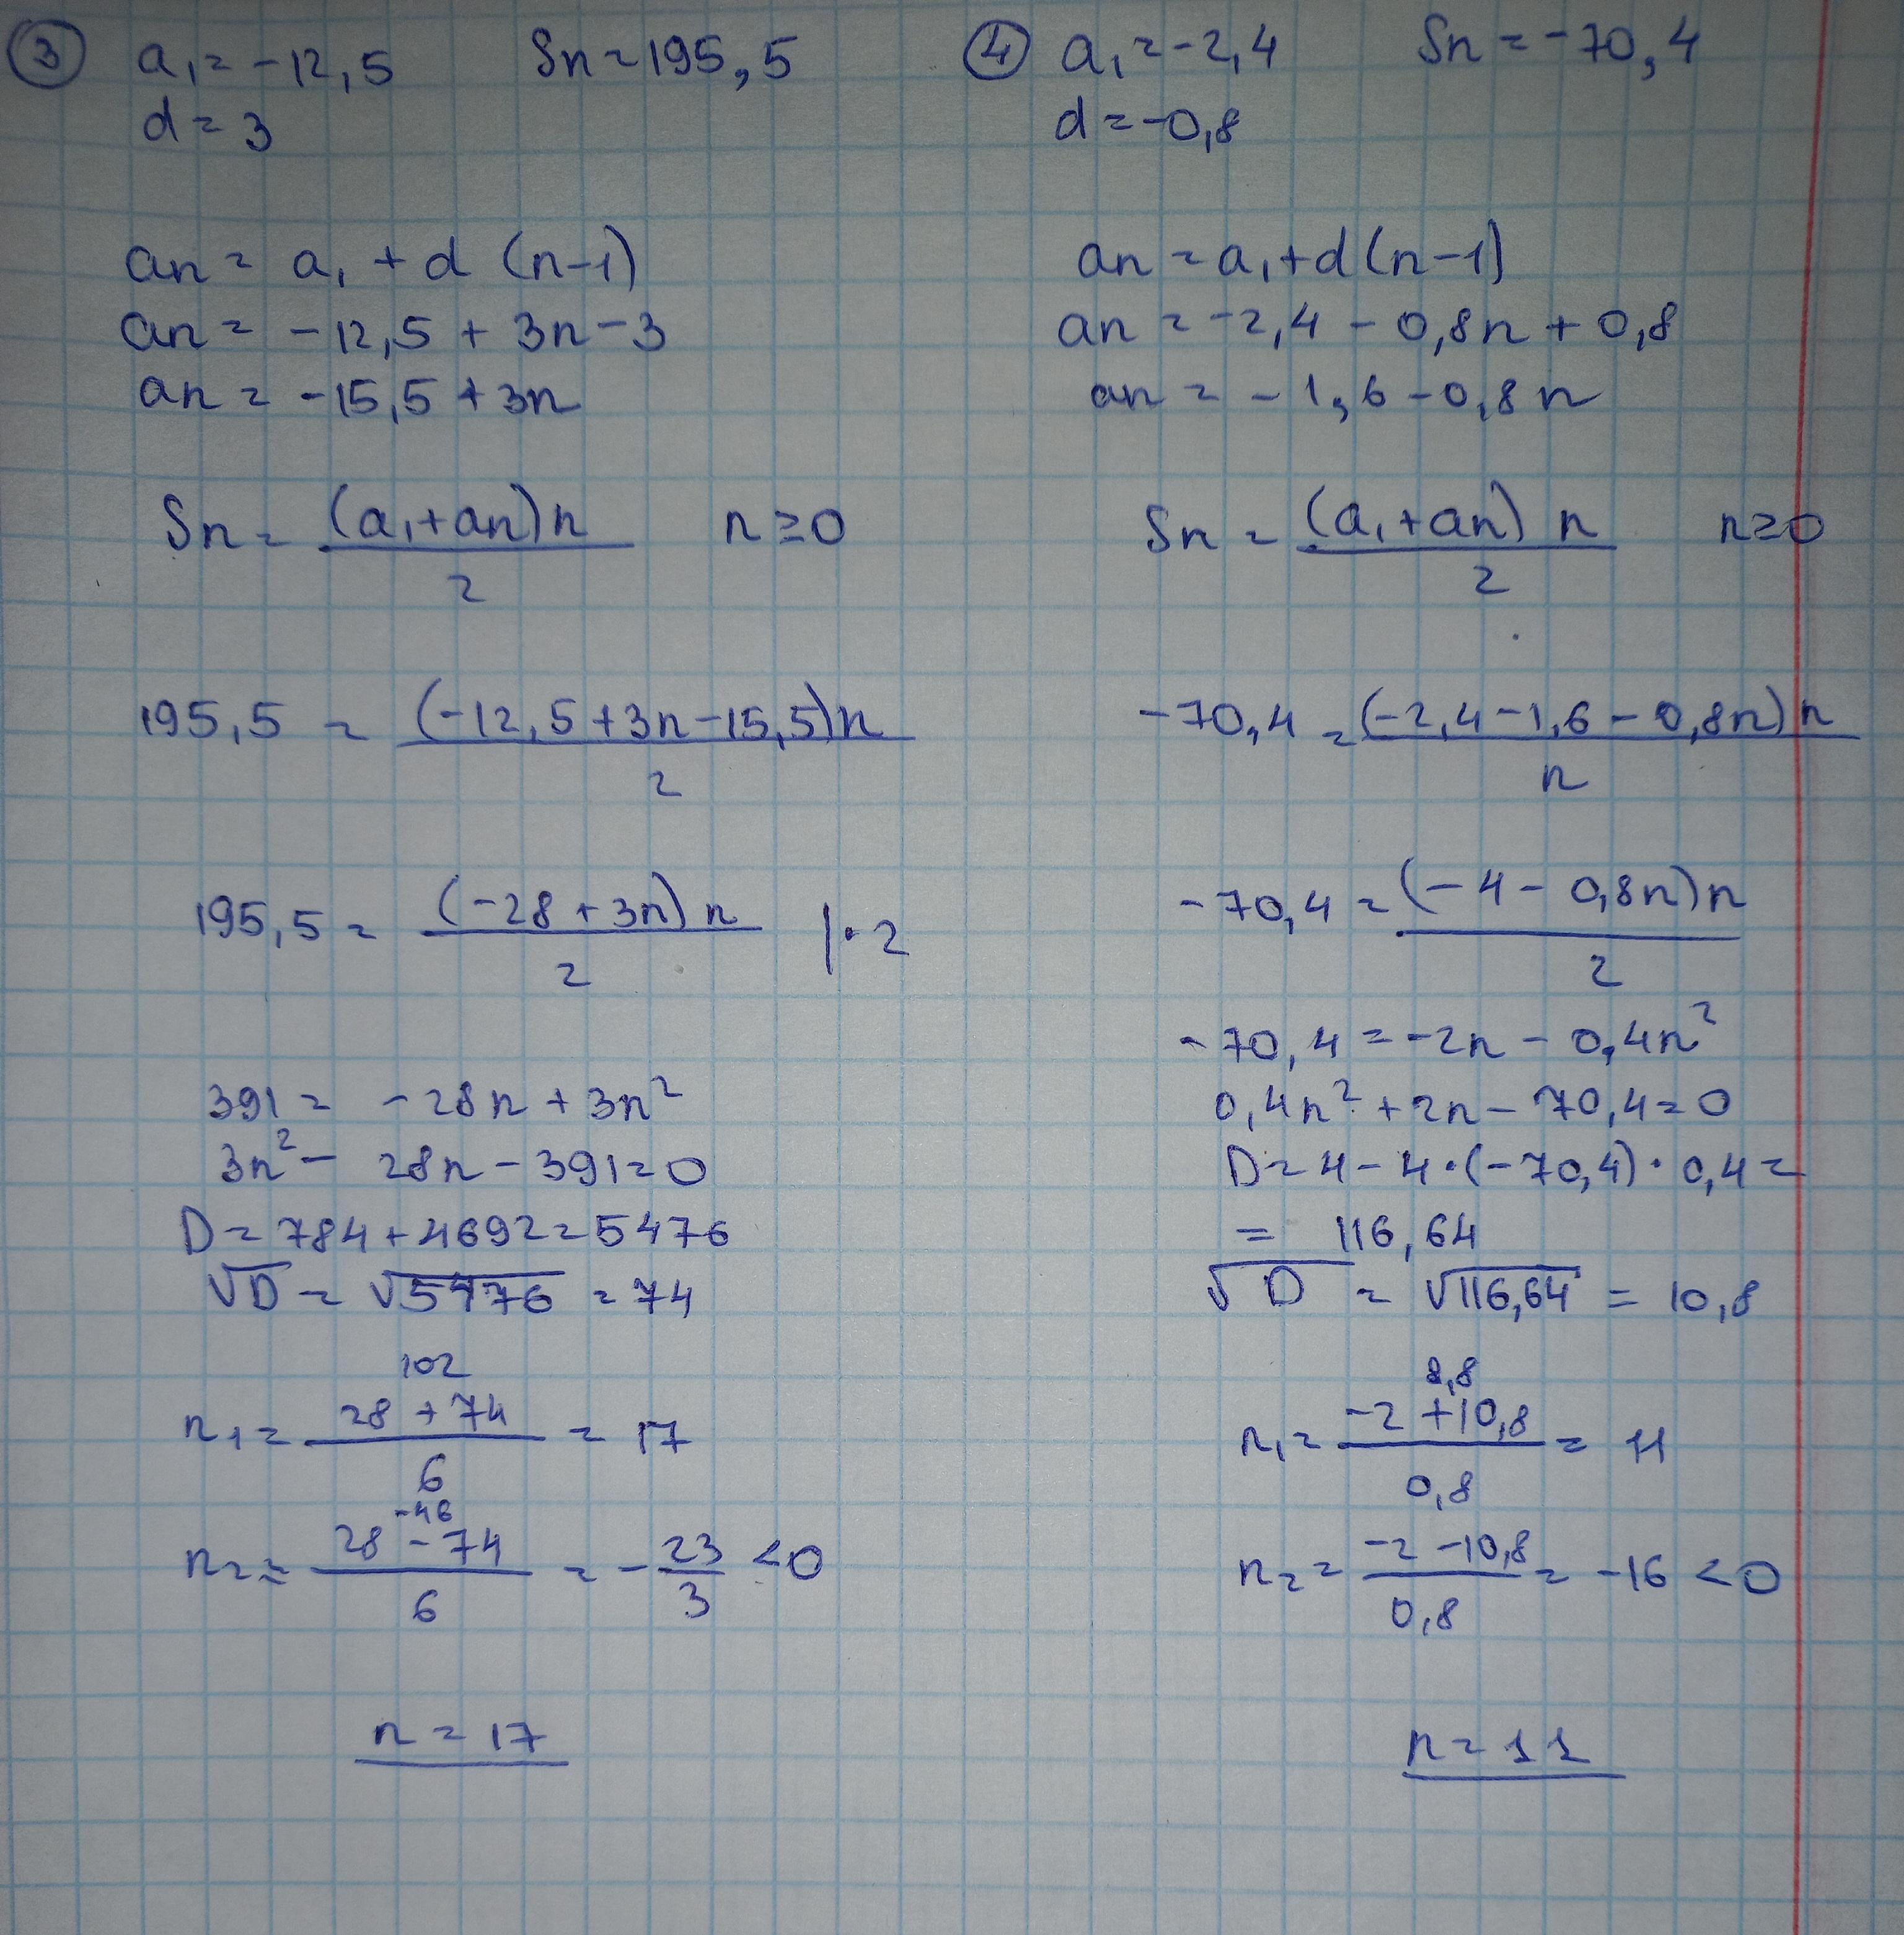 ③ a₁ = -12,5 Sn = 195,5
d = 3
an = a₁ + d (n-1)
an = -12,5 + 3n - 3
an = -15,5 + 3n
Sn = (a₁+an)n / 2 n ≥ 0
195,5 = (-12,5+3n-15,5)n / 2
195,5 = (-28+3n)n / 2 |·2
391 = -28n + 3n²
3n² - 28n - 391 = 0
D = 784 + 4692 = 5476
√D = √5476 = 74
102
n₁ = 28 + 74 / 6 = 17
-46
n₂ = 28 - 74 / 6 = -23/3 < 0
n = 17
④ a₁ = -2,4 Sn = -70,4
d = -0,8
an = a₁ + d(n-1)
an = -2,4 - 0,8n + 0,8
an = -1,6 - 0,8n
Sn = (a₁+an) n / 2 n ≥ 0
-70,4 = (-2,4-1,6-0,8n)n / n
-70,4 = (-4-0,8n)n / 2
-70,4 = -2n - 0,4n²
0,4n² + 2n - 70,4 = 0
D = 4 - 4·(-70,4)·0,4 =
= 116,64
√D = √116,64 = 10,8
8,8
n₁ = -2 + 10,8 / 0,8 = 11
n₂ = -2 - 10,8 / 0,8 = -16 < 0
n = 11